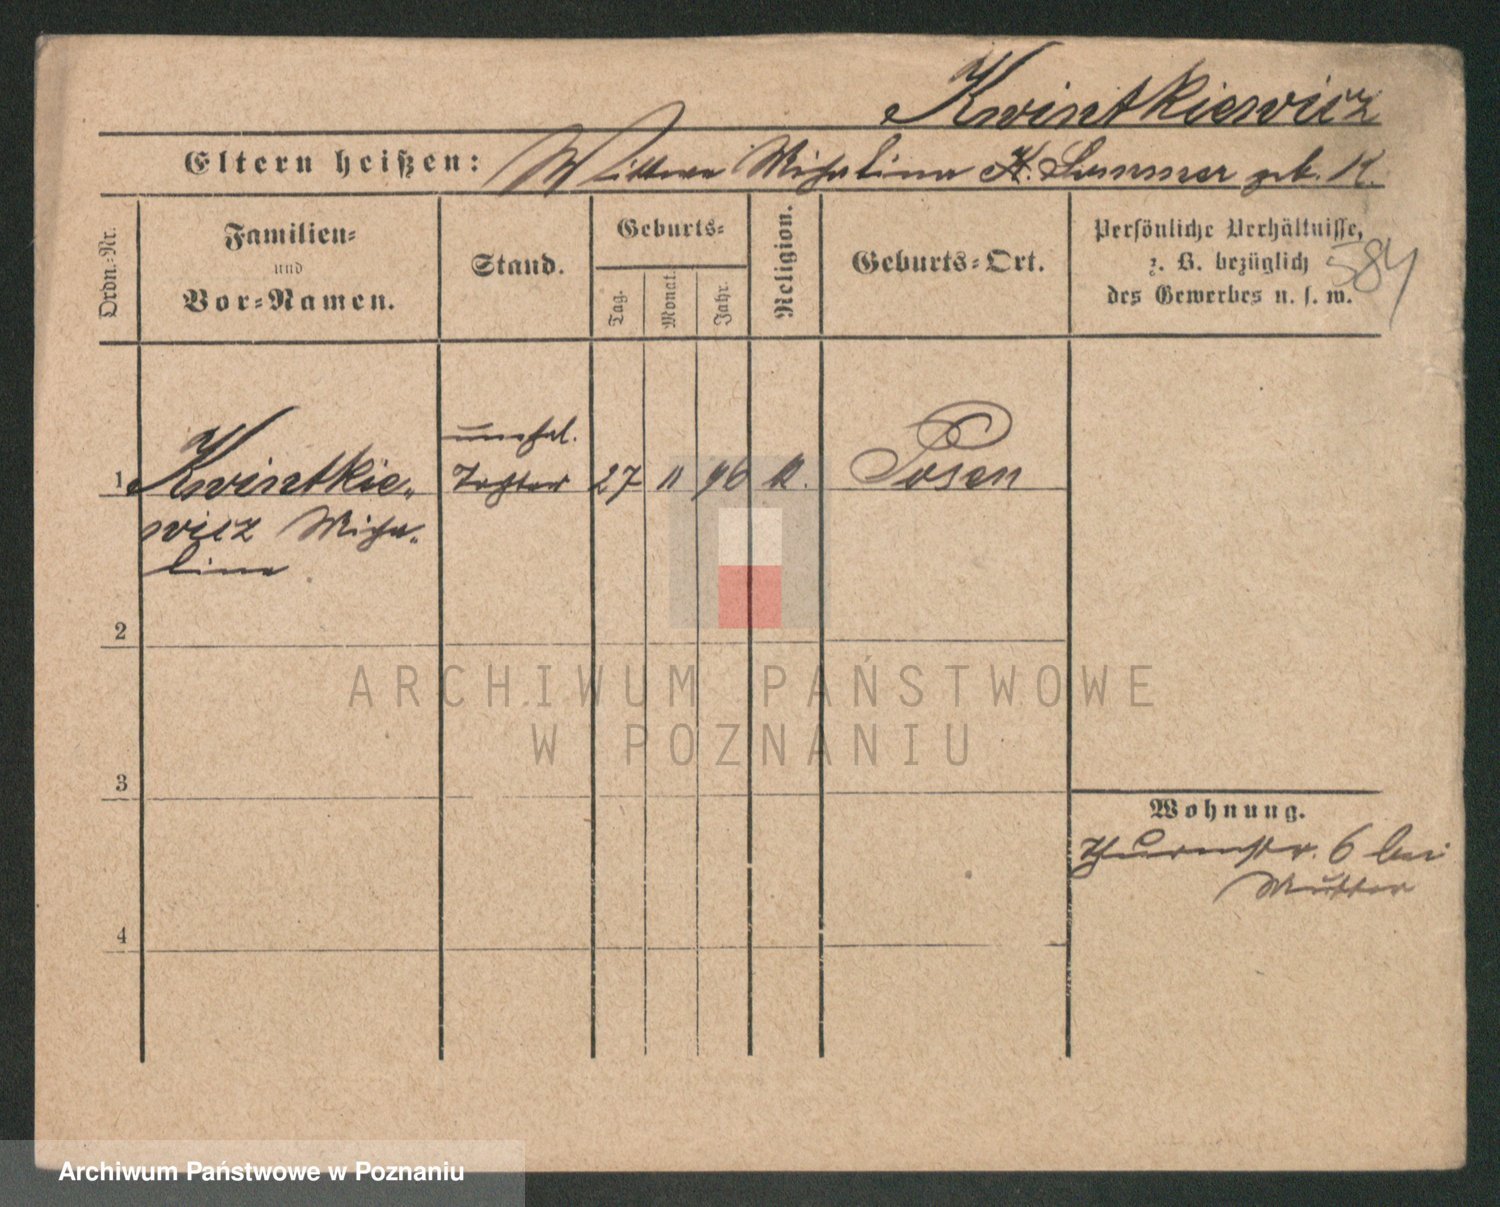 Kwintkiewicz
Eltern heißen: Wittwe Michalina K. Summer geb. K.
Ordn.-Nr.
Familien-
und
Vor-Namen.
Stand.
Geburts-
Tag.
Monat.
Jahr.
Religion.
Geburts-Ort.
Persönliche Verhältnisse,
z. B. bezüglich
des Gewerbes u. s. w.
584
1 Kwintkie-
wicz Micha-
lina
unehel.
Tochter
27 11 96 K. Posen
2
3
4
Wohnung.
Thurmstr. 6 bei
Mutter
ARCHIWUM PAŃSTWOWE
W POZNANIU
Archiwum Państwowe w Poznaniu